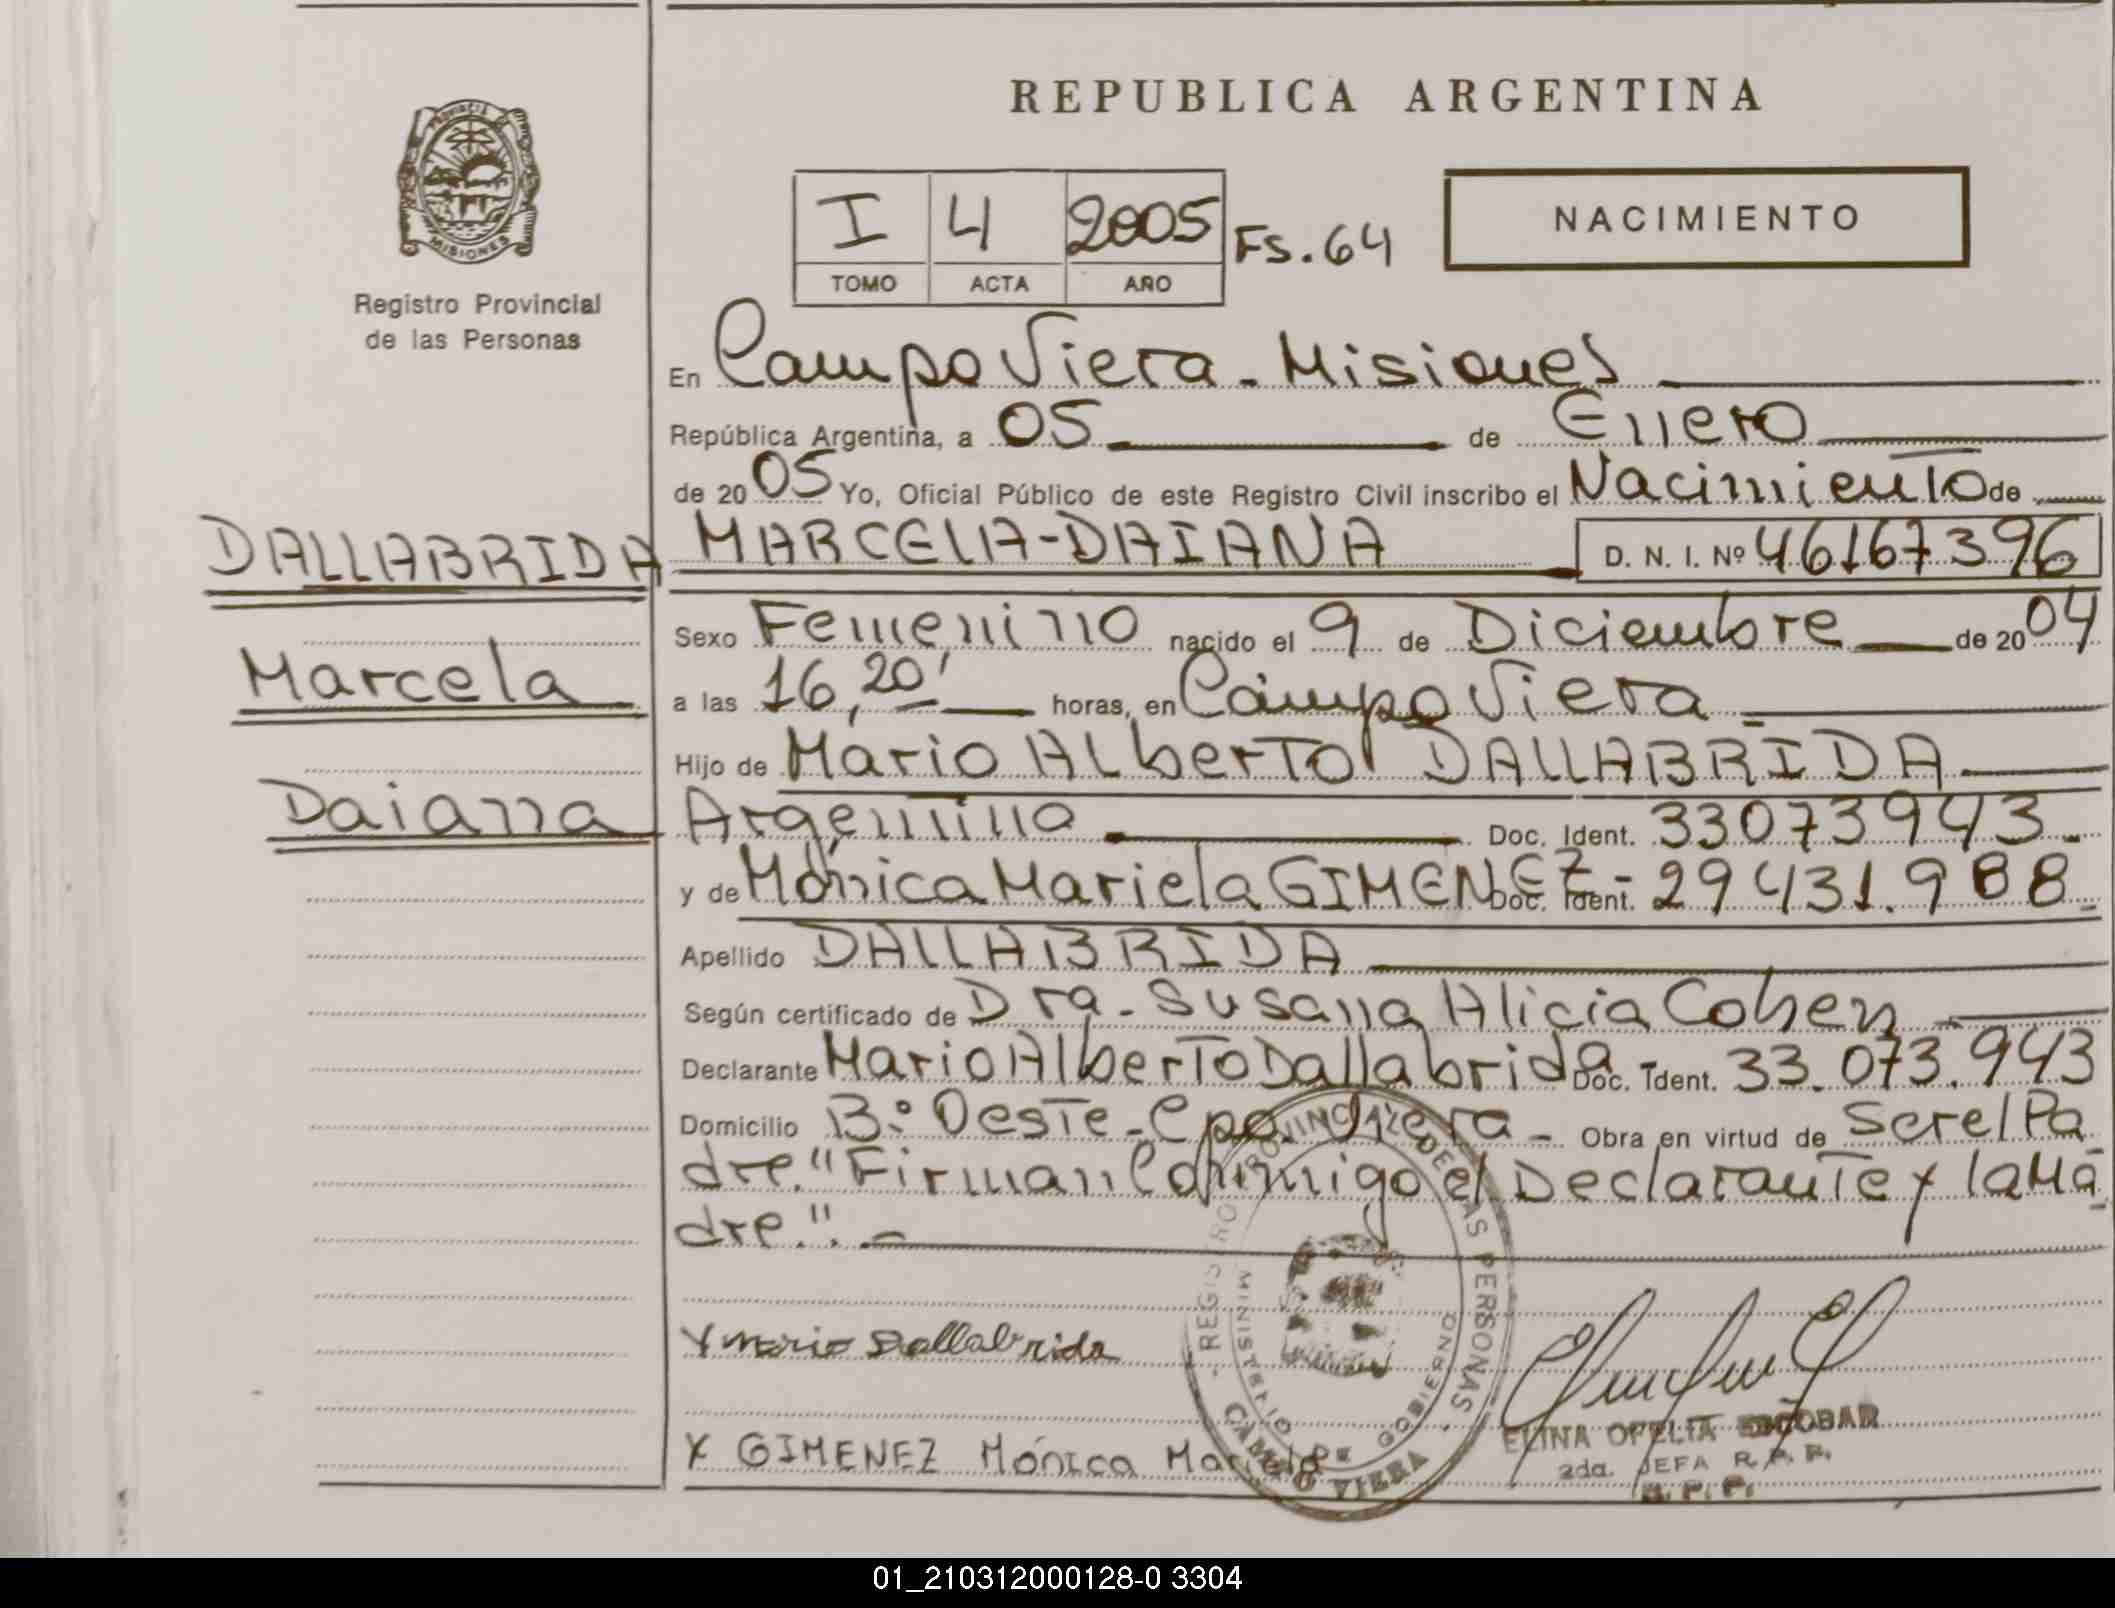 REPUBLICA ARGENTINA
PROVINCIA DE
MISIONES
Registro Provincial
de las Personas
I 4 2005 Fs. 64
TOMO ACTA AÑO
NACIMIENTO
En Campo Viera - Misiones
República Argentina, a 05 de Enero
de 2005 Yo, Oficial Público de este Registro Civil inscribo el Nacimiento de
DALLABRIDA MARCELA-DAIANA D. N. I. Nº 46167396
Sexo Femenino nacido el 9 de Diciembre de 2004
Marcela
a las 16,20' horas, en Campo Viera
Hijo de Mario Alberto DALLABRIDA
Daiana
Argentino Doc. Ident. 33073943.-
y de Mónica Mariela GIMENEZ - Doc. Ident. 29431.988.-
Apellido DALLABRIDA
Según certificado de Dra. Susana Alicia Cohen
Declarante Mario Alberto Dallabrida - Doc. Ident. 33.073.943
Domicilio B.º Oeste - Cpo. Viera - Obra en virtud de Ser el Pa
dre. "Firman Conmigo el Declarante y la Ma
dre.". -
REGISTRO PROVINCIAL DE LAS PERSONAS
MINISTERIO DE GOBIERNO
CAMPO VIERA
X Mario Dallabrida
X GIMENEZ Mónica Mariela
ELINA OFELIA ESCOBAR
2da. JEFA R. P. P.
R. P. P.
01_210312000128-0 3304